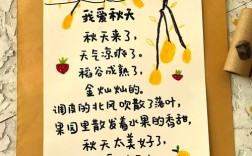 我爱秋天
秋天来了，
天气凉爽了。
稻谷成熟了，
金灿灿的。
调皮的北风吹散了落叶，
果园里散发着水果的香甜，
秋天太美好了，